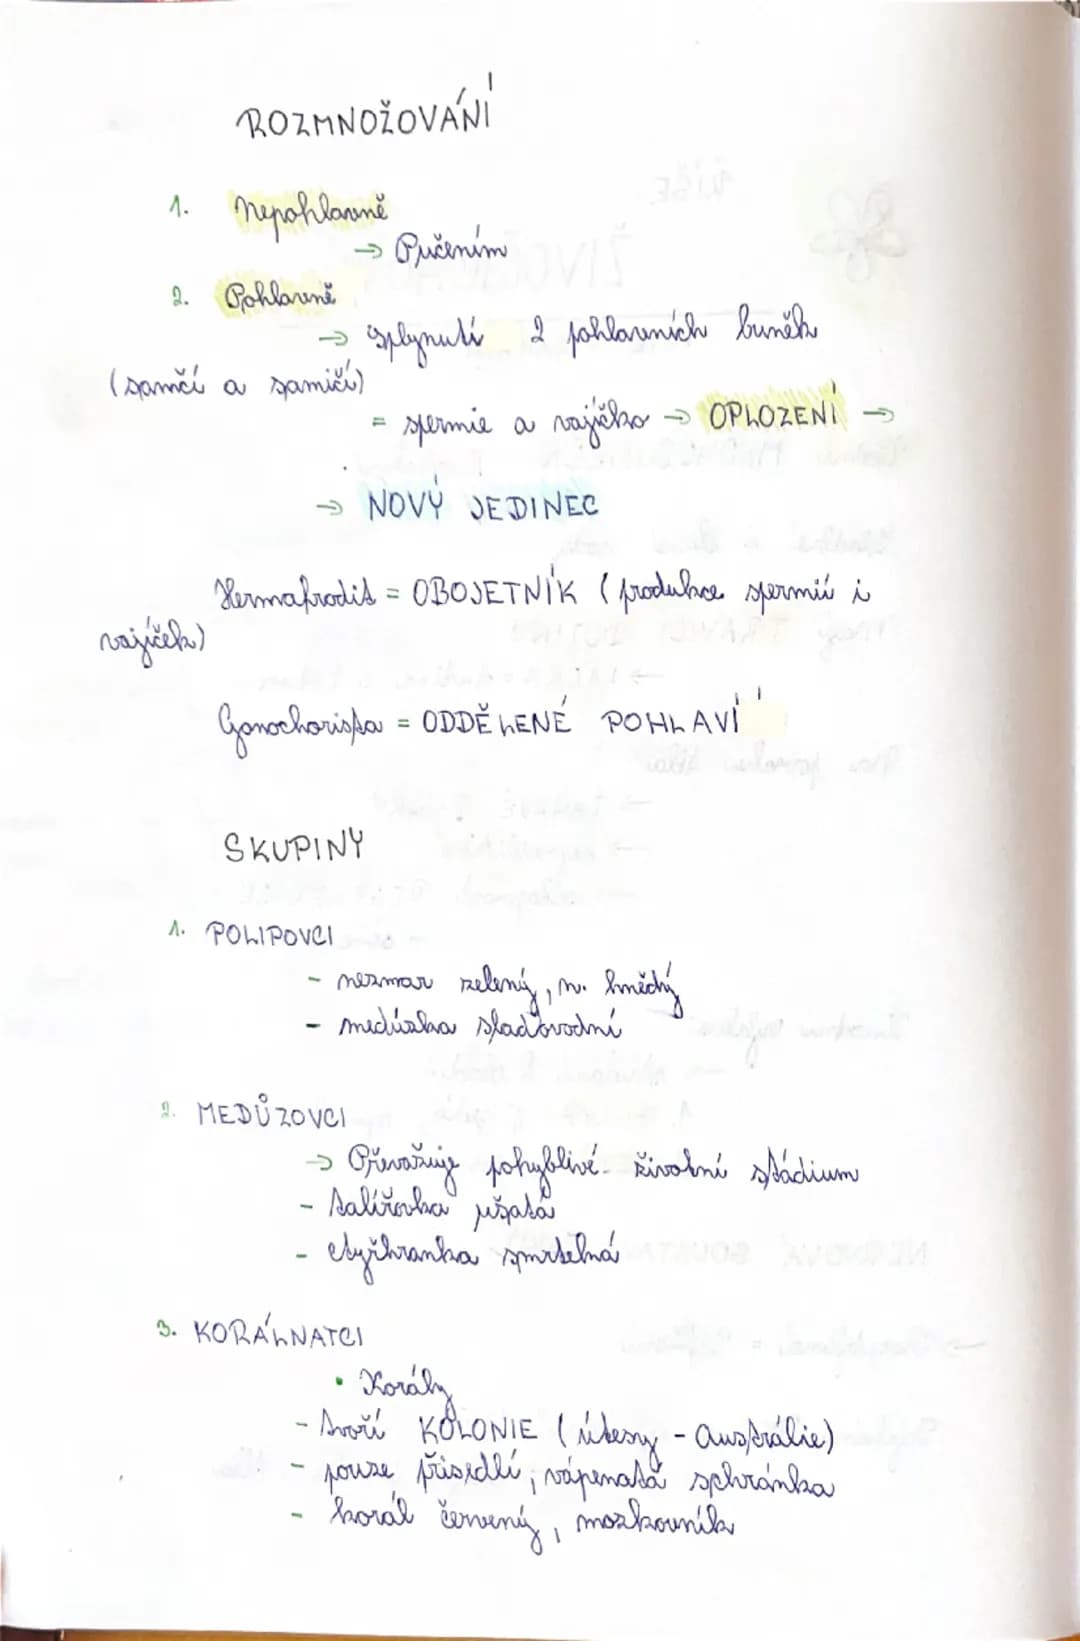 ROZMNOŽOVÁNÍ
1. Nepohlavně
→ Pučením
2. Pohlavně
→ splynutí 2 pohlavních buněk
(samčí a samičí)
= spermie a vajíčko → OPLOZENÍ →
→ NOVÝ JEDINEC
Hermafrodit = OBOJETNÍK (produkce spermií i
vajíček)
Gonochorista = ODDĚLENÉ POHLAVÍ
SKUPINY
1. POLIPOVCI
- nezmar zelený, n. hnědý
- medúzka sladkovodní
2. MEDŮZOVCI
→ Převažuje pohyblivé životní stádium
- talířovka ušatá
- čtyřhranka smrtelná
3. KORÁLNATCI
• Korály
- tvoří KOLONIE (útesy - Austrálie)
- pouze přisedlí, vápenatá schránka
- korál červený, mozkovník